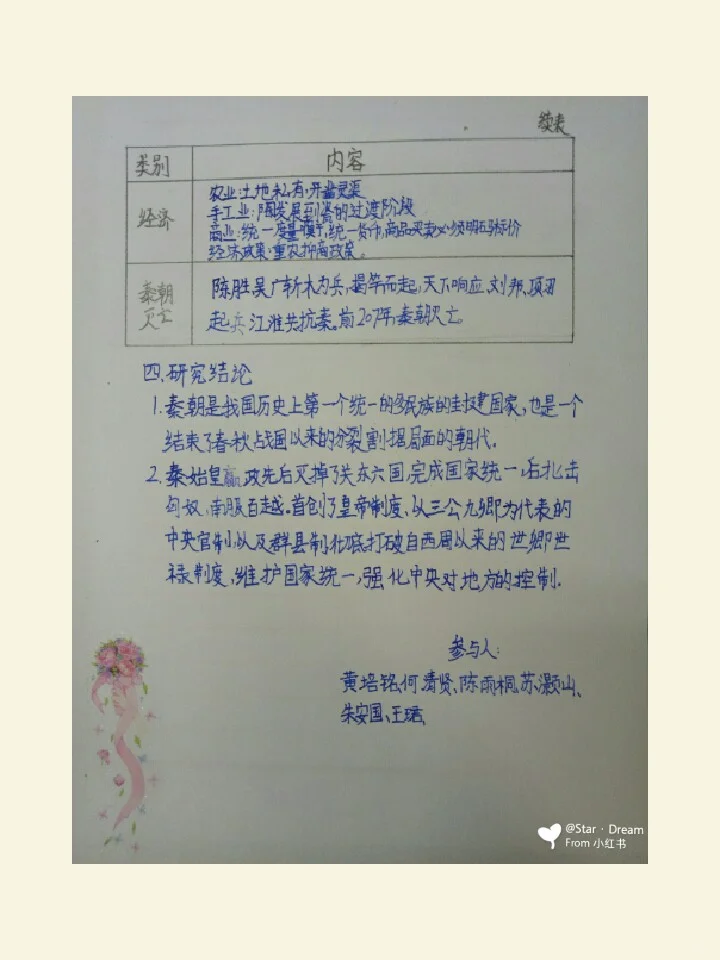 续表
类别 内容
农业:土地私有,开凿灵渠
经济 手工业:陶发展到瓷的过渡阶段
商业:统一度量衡,统一货币,商品买卖必须明码标价
经济政策:重农抑商政策。
秦朝 陈胜吴广斩木为兵,揭竿而起,天下响应,刘邦、项羽
灭亡 起兵江淮共抗秦。前207年,秦朝灭亡
四.研究结论
1.秦朝是我国历史上第一个统一的多民族的封建国家,也是一个
结束了春秋战国以来的分裂割据局面的朝代.
2.秦始皇嬴政先后灭掉了关东六国完成国家统一,后北击
匈奴,南服百越.首创了皇帝制度,以三公九卿为代表的
中央官制,以及群县制,彻底打破自西周以来的世卿世
禄制度,维护国家统一,强化中央对地方的控制.
参与人:
黄培铭、何清贤、陈雨桐、苏灏山、
朱安国、王
@Star · Dream
From 小红书